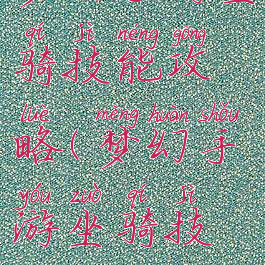 qí jì néng gōng
骑技能攻
lüè mèng huàn shǒu
略(梦幻手
yóu zuò qí jì
游坐骑技